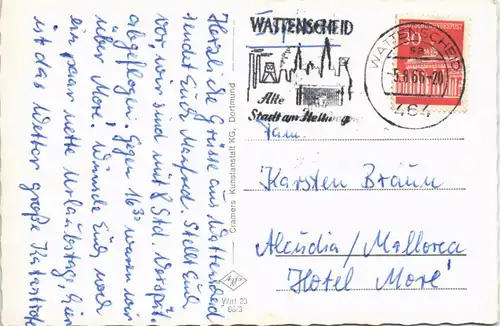 Herzliche Grüße aus Wattenscheid
sendet Euch Manfred. Stellt Euch
vor, wir sind mit 8 Std. Verspät.
abgeflogen. Gegen 16³⁰ waren wir
über Moré. Wünsche Euch noch
ein paar nette Urlaubstage, hier
ist das Wetter große Katastrophe
Cramers Kunstanstalt KG, Dortmund
Wat 23
66/3
WATTENSCHEID
Alte
Stadt am Hellweg
WATTENSCHEID
-5.8.66-20
464
DEUTSCHE BUNDESPOST
30
Fam.
Karsten Braun
Alcudia/Mallorca
Hotel Moré